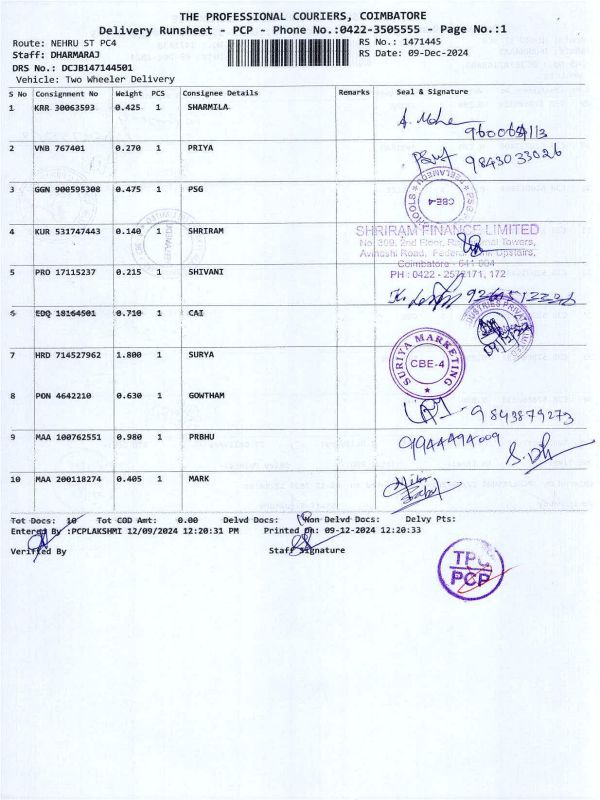 THE PROFESSIONAL COURIERS, COIMBATORE
Delivery Runsheet - PCP - Phone No.:0422-3505555 - Page No.:1
Route: NEHRU ST PC4 RS No.: 1471445
Staff: DHARMARAJ RS Date: 09-Dec-2024
DRS No.: DCJB147144501
Vehicle: Two Wheeler Delivery
S No Consignment No Weight PCS Consignee Details Remarks Seal & Signature
1 KRR 30063593 0.425 1 SHARMILA
2 VNB 767401 0.270 1 PRIYA 9843033026
3 GGN 900595308 0.475 1 PSG
CBE-4
4 KUR 531747443 0.140 1 SHRIRAM SHRIRAM FINANCE LIMITED
No. 309, 2nd Floor, Towers,
Avinashi Road, Federal Bank Upstairs,
Coimbatore - 641 004
5 PRO 17115237 0.215 1 SHIVANI PH : 0422 - 2572171, 172
6 EDQ 18164501 0.710 1 CAI
7 HRD 714527962 1.800 1 SURYA SURIYA MARKETING CBE-4
8 PON 4642210 0.630 1 GOWTHAM 9843879273
9 MAA 100762551 0.980 1 PRBHU 9944494009
10 MAA 200118274 0.405 1 MARK
Tot Docs: 10 Tot COD Amt: 0.00 Delvd Docs: Non Delvd Docs: Delvy Pts:
Entered By :PCPLAKSHMI 12/09/2024 12:20:31 PM Printed On: 09-12-2024 12:20:33
Verified By Staff Signature
TPC
PCP